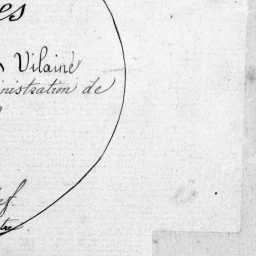 es
Vilaine
nistration de
ef